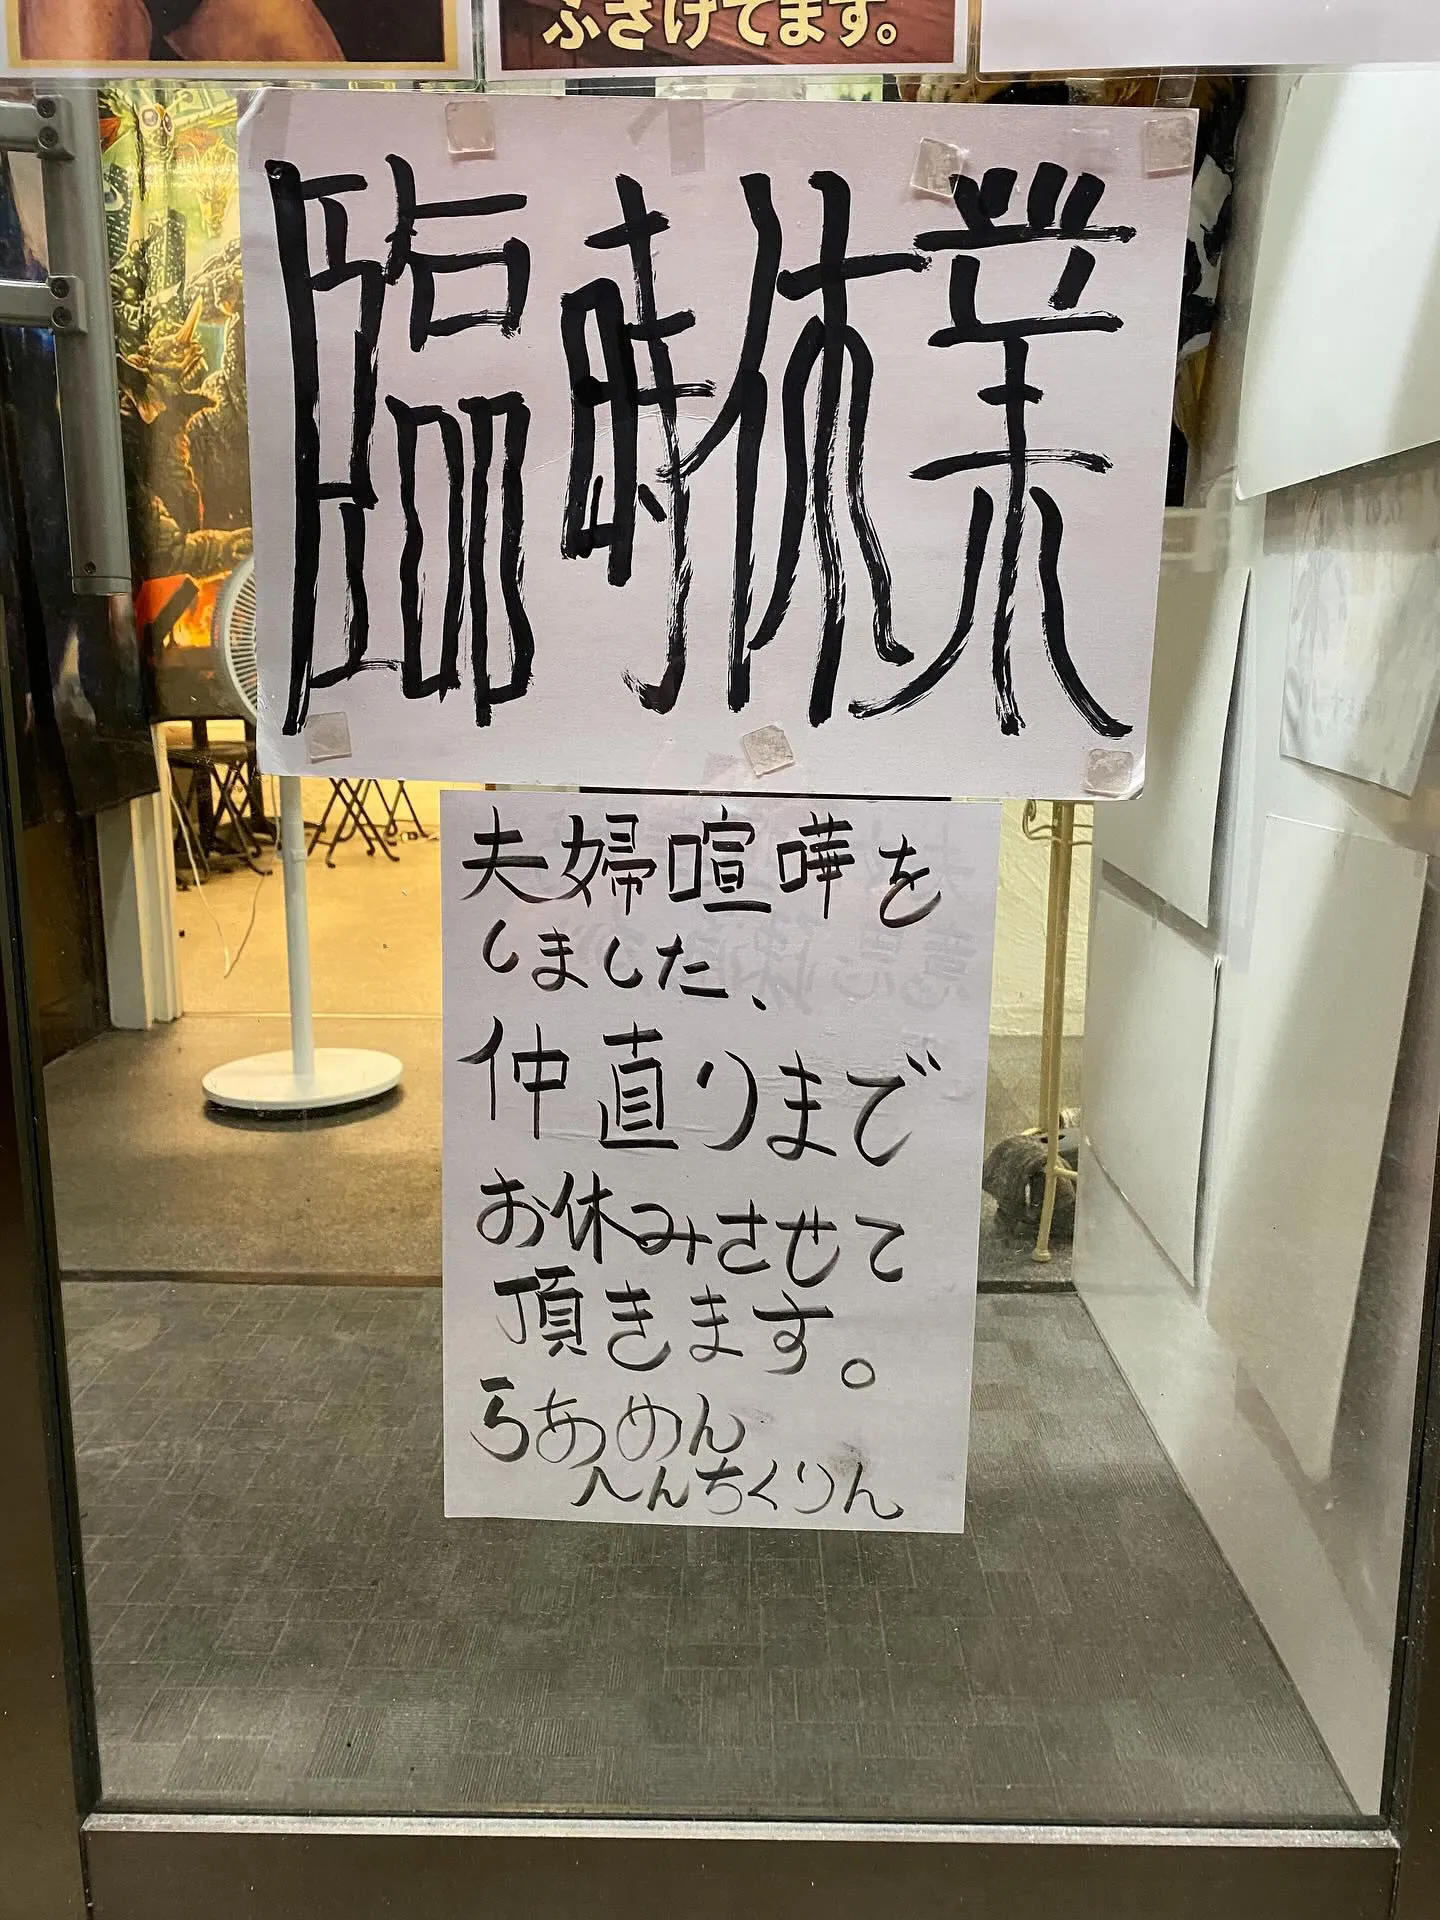 ふざけてます。
臨時休業
夫婦喧嘩を
しました、
仲直りまで
お休みさせて
頂きます。
らあめん
へんちくりん